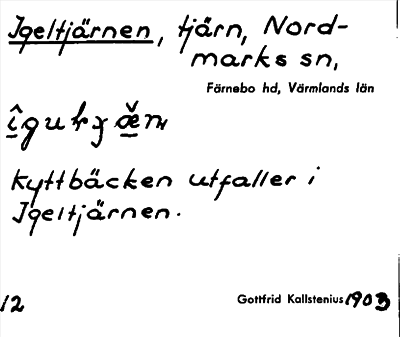 Igeltjärnen, tjärn, Nord-
marks sn,
Färnebo hd, Värmlands län
Kyttbäcken utfaller i
Igeltjärnen.
12
Gottfrid Kallstenius 1903